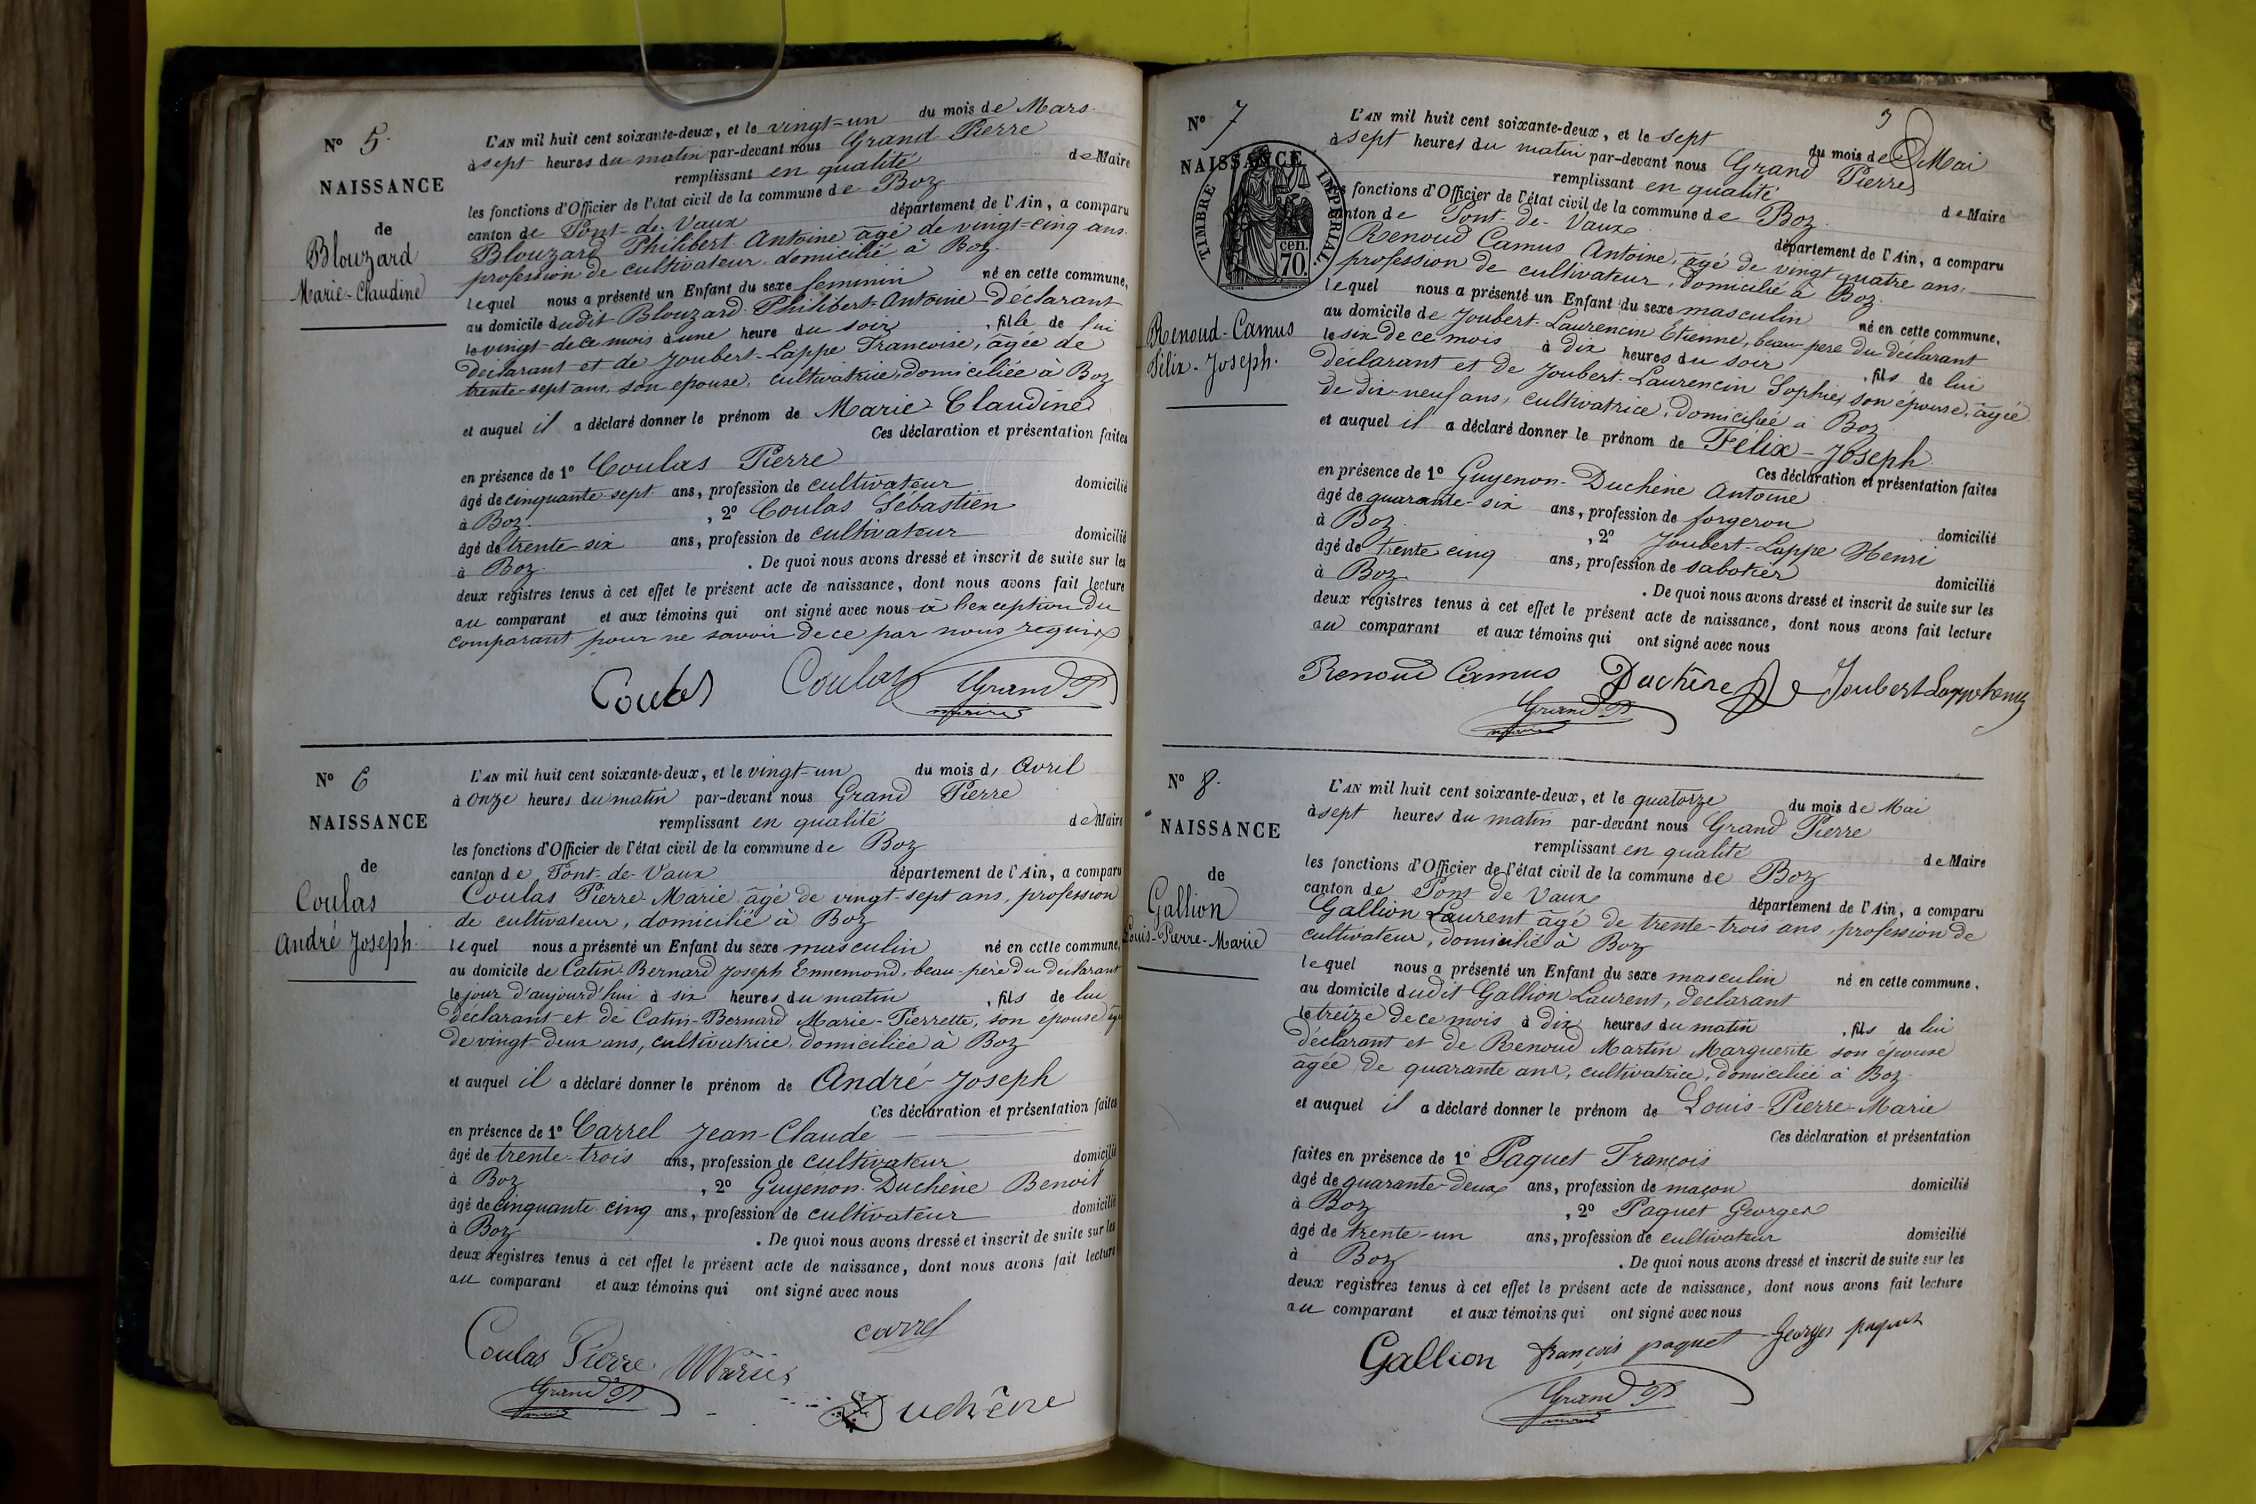 N° 5.
NAISSANCE
de
Blouzard
Marie-Claudine
L'AN mil huit cent soixante-deux, et le vingt-un du mois de Mars
à sept heures du matin par-devant nous Grand Pierre
remplissant en qualité de Maire
les fonctions d'Officier de l'état civil de la commune de Boz
canton de Pont-de-Vaux département de l'Ain, a comparu
Blouzard Philibert Antoine âgé de vingt-cinq ans.
profession de cultivateur domicilié à Boz.
lequel nous a présenté un Enfant du sexe feminin né en cette commune,
au domicile dudit Blouzard Philibert-Antoine déclarant
le vingt de ce mois à une heure du soir, fille de lui
déclarant et de Joubert-Lappe Francoise, âgée de
trente-sept ans, son epouse, cultivatrice, domiciliée à Boz
et auquel il a déclaré donner le prénom de Marie-Claudine
Ces déclaration et présentation faites
en présence de 1° Coulas Pierre
âgé de cinquante-sept ans, profession de cultivateur domicilié
à Boz. , 2° Coulas Sébastien
âgé de trente-six ans, profession de cultivateur domicilié
à Boz. . De quoi nous avons dressé et inscrit de suite sur les
deux registres tenus à cet effet le présent acte de naissance, dont nous avons fait lecture
au comparant et aux témoins qui ont signé avec nous à l'exception du
comparant pour ne savoir de ce par nous requis
Coulas Coulas Grand P
maire
N° 6
NAISSANCE
de
Coulas
André Joseph.
L'AN mil huit cent soixante-deux, et le vingt-un du mois d, Avril
à onze heures du matin par-devant nous Grand Pierre
remplissant en qualité de Maire
les fonctions d'Officier de l'état civil de la commune de Boz
canton de Pont-de-Vaux département de l'Ain, a comparu
Coulas Pierre Marie âgé de vingt-sept ans, profession
de cultivateur, domicilié à Boz
lequel nous a présenté un Enfant du sexe masculin né en cette commune,
au domicile de Catin-Bernard Joseph Ennemond, beau-père du déclarant
le jour d'aujourd'hui à six heures du matin , fils de lui
déclarant et de Catin-Bernard Marie-Pierrette, son epouse âgée
de vingt-deux ans, cultivatrice, domiciliée à Boz
et auquel il a déclaré donner le prénom de André-Joseph
Ces déclaration et présentation faites
en présence de 1° Carrel Jean-Claude
âgé de trente-trois ans, profession de cultivateur domicilié
à Boz , 2° Guyénon-Duchène Benoit
âgé de cinquante-cinq ans, profession de cultivateur domicilié
à Boz . De quoi nous avons dressé et inscrit de suite sur les
deux registres tenus à cet effet le présent acte de naissance, dont nous avons fait lecture
au comparant et aux témoins qui ont signé avec nous
carrel
Coulas Pierre Marie
Grand P Duchêne
maire
3
N° 7
NAISSANCE
TIMBRE IMPÉRIAL
cen.
70.
Renoud-Camus
Félix-Joseph.
L'AN mil huit cent soixante-deux, et le sept du mois de Mai
à sept heures du matin par-devant nous Grand Pierre
remplissant en qualité de Maire
les fonctions d'Officier de l'état civil de la commune de Boz
canton de Pont-de-Vaux département de l'Ain, a comparu
Renoud Camus Antoine, âgé de vingt quatre ans,
profession de cultivateur, domicilié à Boz.
lequel nous a présenté un Enfant du sexe masculin né en cette commune,
au domicile de Joubert-Laurencin Etienne, beau-père du déclarant
le six de ce mois à dix heures du soir , fils de lui
déclarant et de Joubert-Laurencin Sophie, son épouse, âgée
de dix-neuf ans, cultivatrice, domiciliée à Boz
et auquel il a déclaré donner le prénom de Félix-Joseph
Ces déclaration et présentation faites
en présence de 1° Guyenon-Duchène Antoine
âgé de quarante-six ans, profession de forgeron domicilié
à Boz. , 2° Joubert-Lappe Henri
âgé de trente cinq ans, profession de sabotier domicilié
à Boz. . De quoi nous avons dressé et inscrit de suite sur les
deux registres tenus à cet effet le présent acte de naissance, dont nous avons fait lecture
au comparant et aux témoins qui ont signé avec nous
Renoud Camus Duchêne Joubert Lappe henry
Grand P
maire
N° 8.
NAISSANCE
de
Gallion
Louis-Pierre-Marie
L'AN mil huit cent soixante-deux, et le quatorze du mois de Mai
à sept heures du matin par-devant nous Grand Pierre
remplissant en qualité de Maire
les fonctions d'Officier de l'état civil de la commune de Boz
canton de Pont de Vaux département de l'Ain, a comparu
Gallion Laurent âgé de trente-trois ans, profession de
cultivateur, domicilié à Boz
lequel nous a présenté un Enfant du sexe masculin né en cette commune,
au domicile dudit Gallion Laurent, déclarant
le treize de ce mois à dix heures du matin , fils de lui
déclarant et de Renoud Martin Marguerite son épouse
âgée de quarante ans, cultivatrice, domiciliée à Boz.
et auquel il a déclaré donner le prénom de Louis-Pierre-Marie
Ces déclaration et présentation
faites en présence de 1° Paquet François
âgé de quarante-deux ans, profession de maçon domicilié
à Boz , 2° Paquet Georges
âgé de trente-un ans, profession de cultivateur domicilié
à Boz . De quoi nous avons dressé et inscrit de suite sur les
deux registres tenus à cet effet le présent acte de naissance, dont nous avons fait lecture
au comparant et aux témoins qui ont signé avec nous
Gallion françois paquet Georges paquet
Grand P
maire